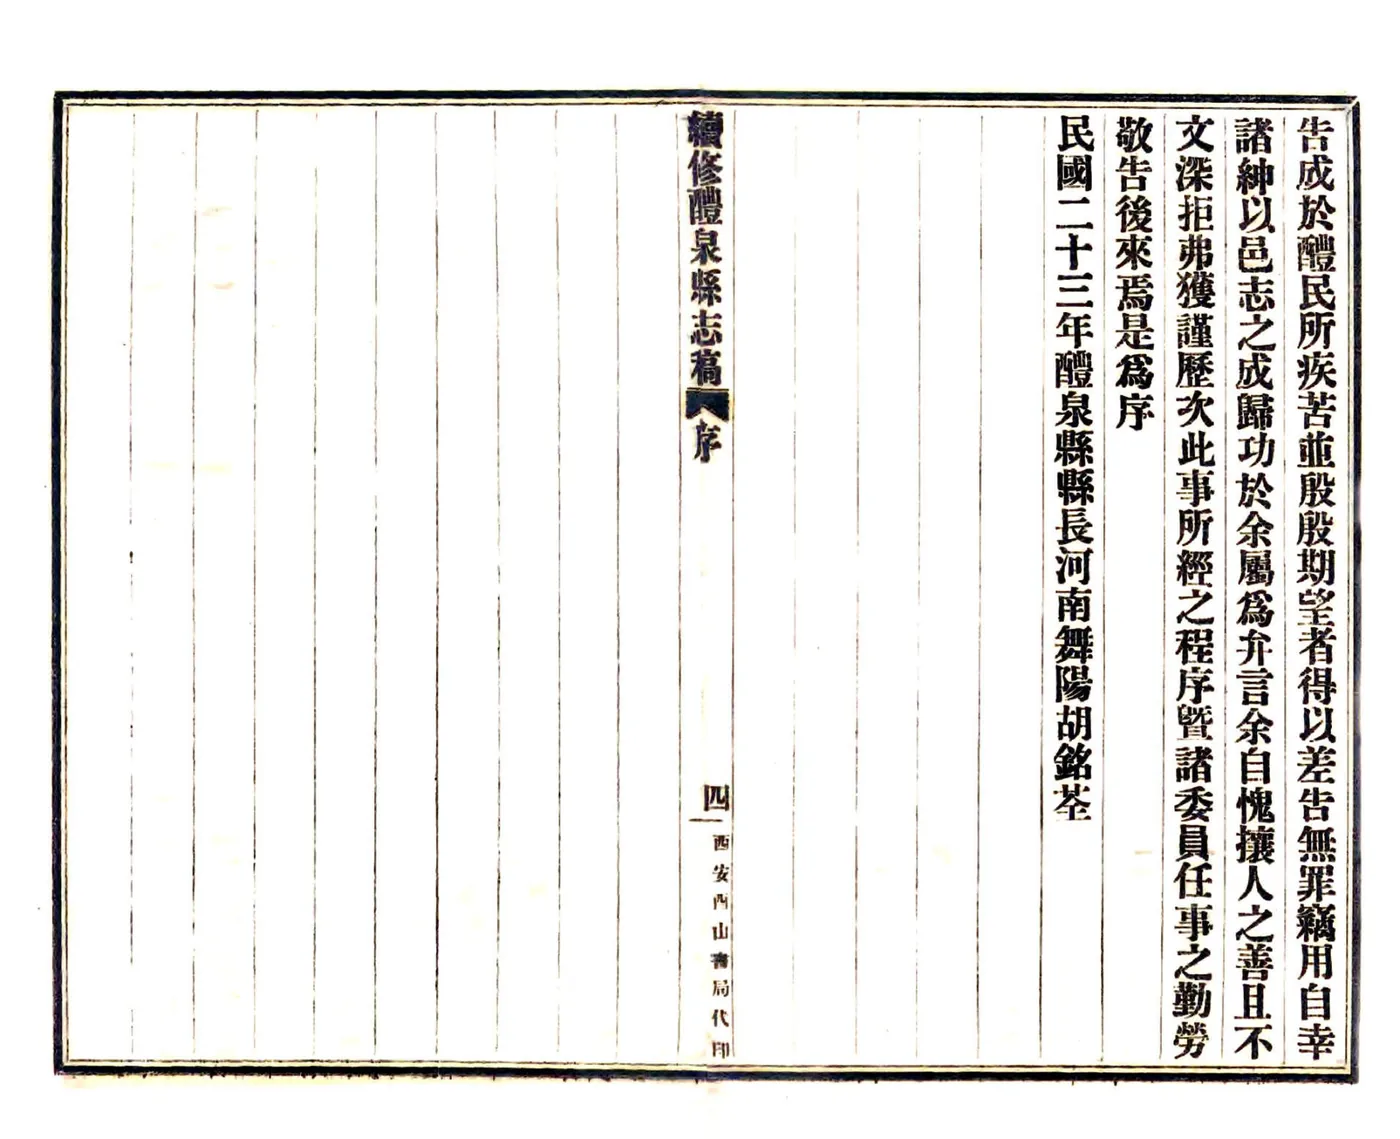 告成於醴民所疾苦並殷殷期望者得以差告無罪竊用自幸
諸紳以邑志之成歸功於余屬爲弁言余自愧攘人之善且不
文深拒弗獲謹歷次此事所經之程序曁諸委員任事之勤勞
敬告後來焉是爲序
民國二十三年醴泉縣縣長河南舞陽胡銘荃
續修醴泉縣志稿 序
四
西安西山書局代印